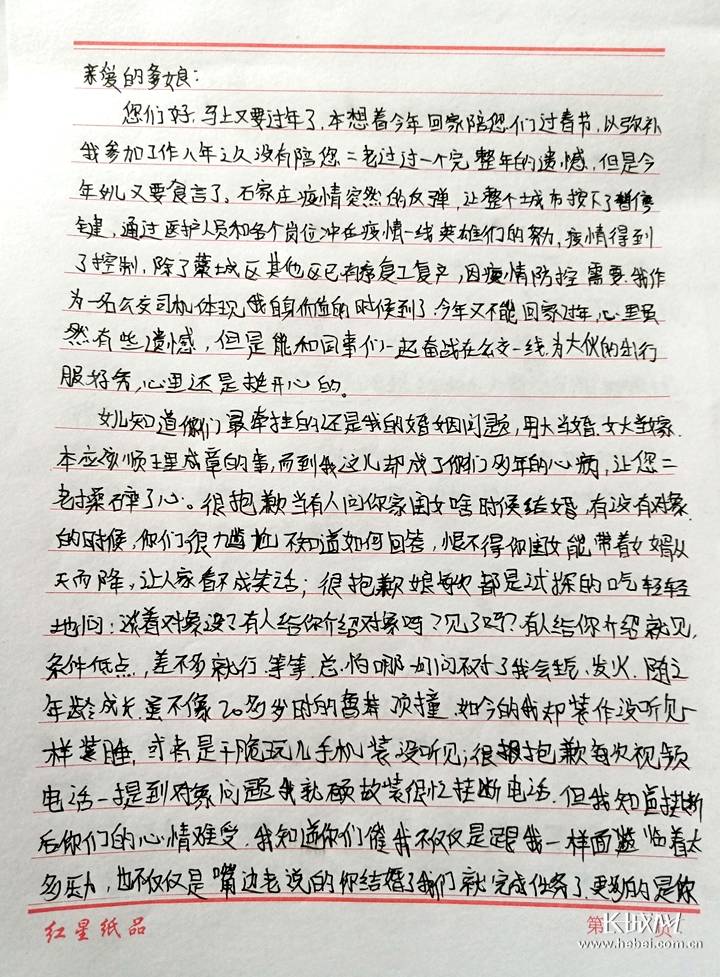 亲爱的爹娘:
您们好,马上又要过年了,本想着今年回家陪您们过春节,以弥补
我参加工作八年之久没有陪您二老过过一个完整年的遗憾,但是今
年女儿又要食言了。石家庄疫情突然的反弹,让整个城市按下了暂停
键,通过医护人员和各个岗位冲在疫情一线英雄们的努力,疫情得到
了控制,除了藁城区其他区已有序复工复产,因疫情防控需要,我作
为一名公交司机体现我自身价值的时候到了.今年又不能回家过年,心里虽
然有些遗憾,但是能和同事们一起奋战在公交一线,为大伙的出行
服好务,心里还是挺开心的。
女儿知道你们最牵挂的还是我的婚姻问题,男大当婚.女大当嫁.
本应该顺理成章的事,而到我这儿却成了你们多年的心病,让您二
老操碎了心。很抱歉当有人问你家闺女啥时候结婚,有没有对象
的时候,你们很尴尬不知道如何回答,恨不得你闺女能带着女婿从
天而降,让人家看不成笑话;很抱歉娘每次都是试探的口气轻轻
地问:谈着对象没?有人给你介绍对象吗?见了吗?有人给你介绍就见,
条件低点,差不多就行.等等.总怕哪句问不对了我会生气、发火.随之
年龄成长.虽不像20多岁时的莽撞顶撞.如今的我却装作没听见一
样装睡,或者是干脆玩儿手机装没听见;很抱歉每次视频
电话一提到对象问题我就硬故装很忙挂断电话.但我知道挂断
后你们的心情难受.我知道你们催我不仅仅是跟我一样面临着太
多压力,也不仅仅是嘴边老说的你结婚了我们就完成任务了.更多的是你
红星纸品
第 页
长城网
www.hebei.com.cn